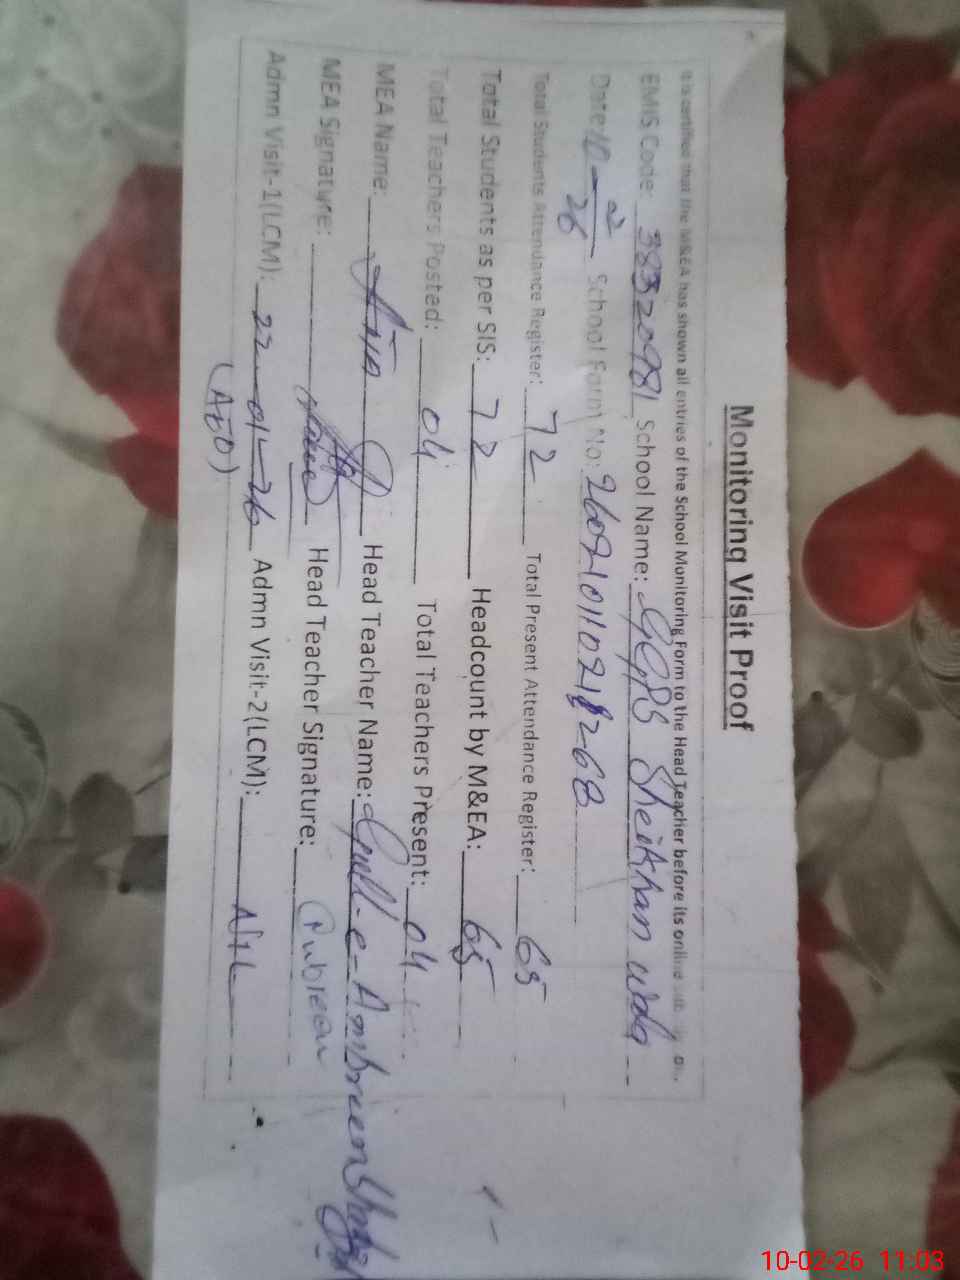 Monitoring Visit Proof
It is certified that the M&EA has shown all entries of the School Monitoring Form to the Head Teacher before its online
EMIS Code: 38320981 School Name: GGPS Sheikhan wala
Date: 10-2/26 School Form No:
Total Students Attendance Register: 72 Total Present Attendance Register: 65
Total Students as per SIS: 72 Headcount by M&EA: 65
Total Teachers Posted: 04 Total Teachers Present: 04
MEA Name: Head Teacher Name: Gull-e-Ambreen
MEA Signature: Head Teacher Signature:
Admn Visit-1(LCM): 22-01-26 Admn Visit-2(LCM): NIL
(AEO)
10-02-26 11:03